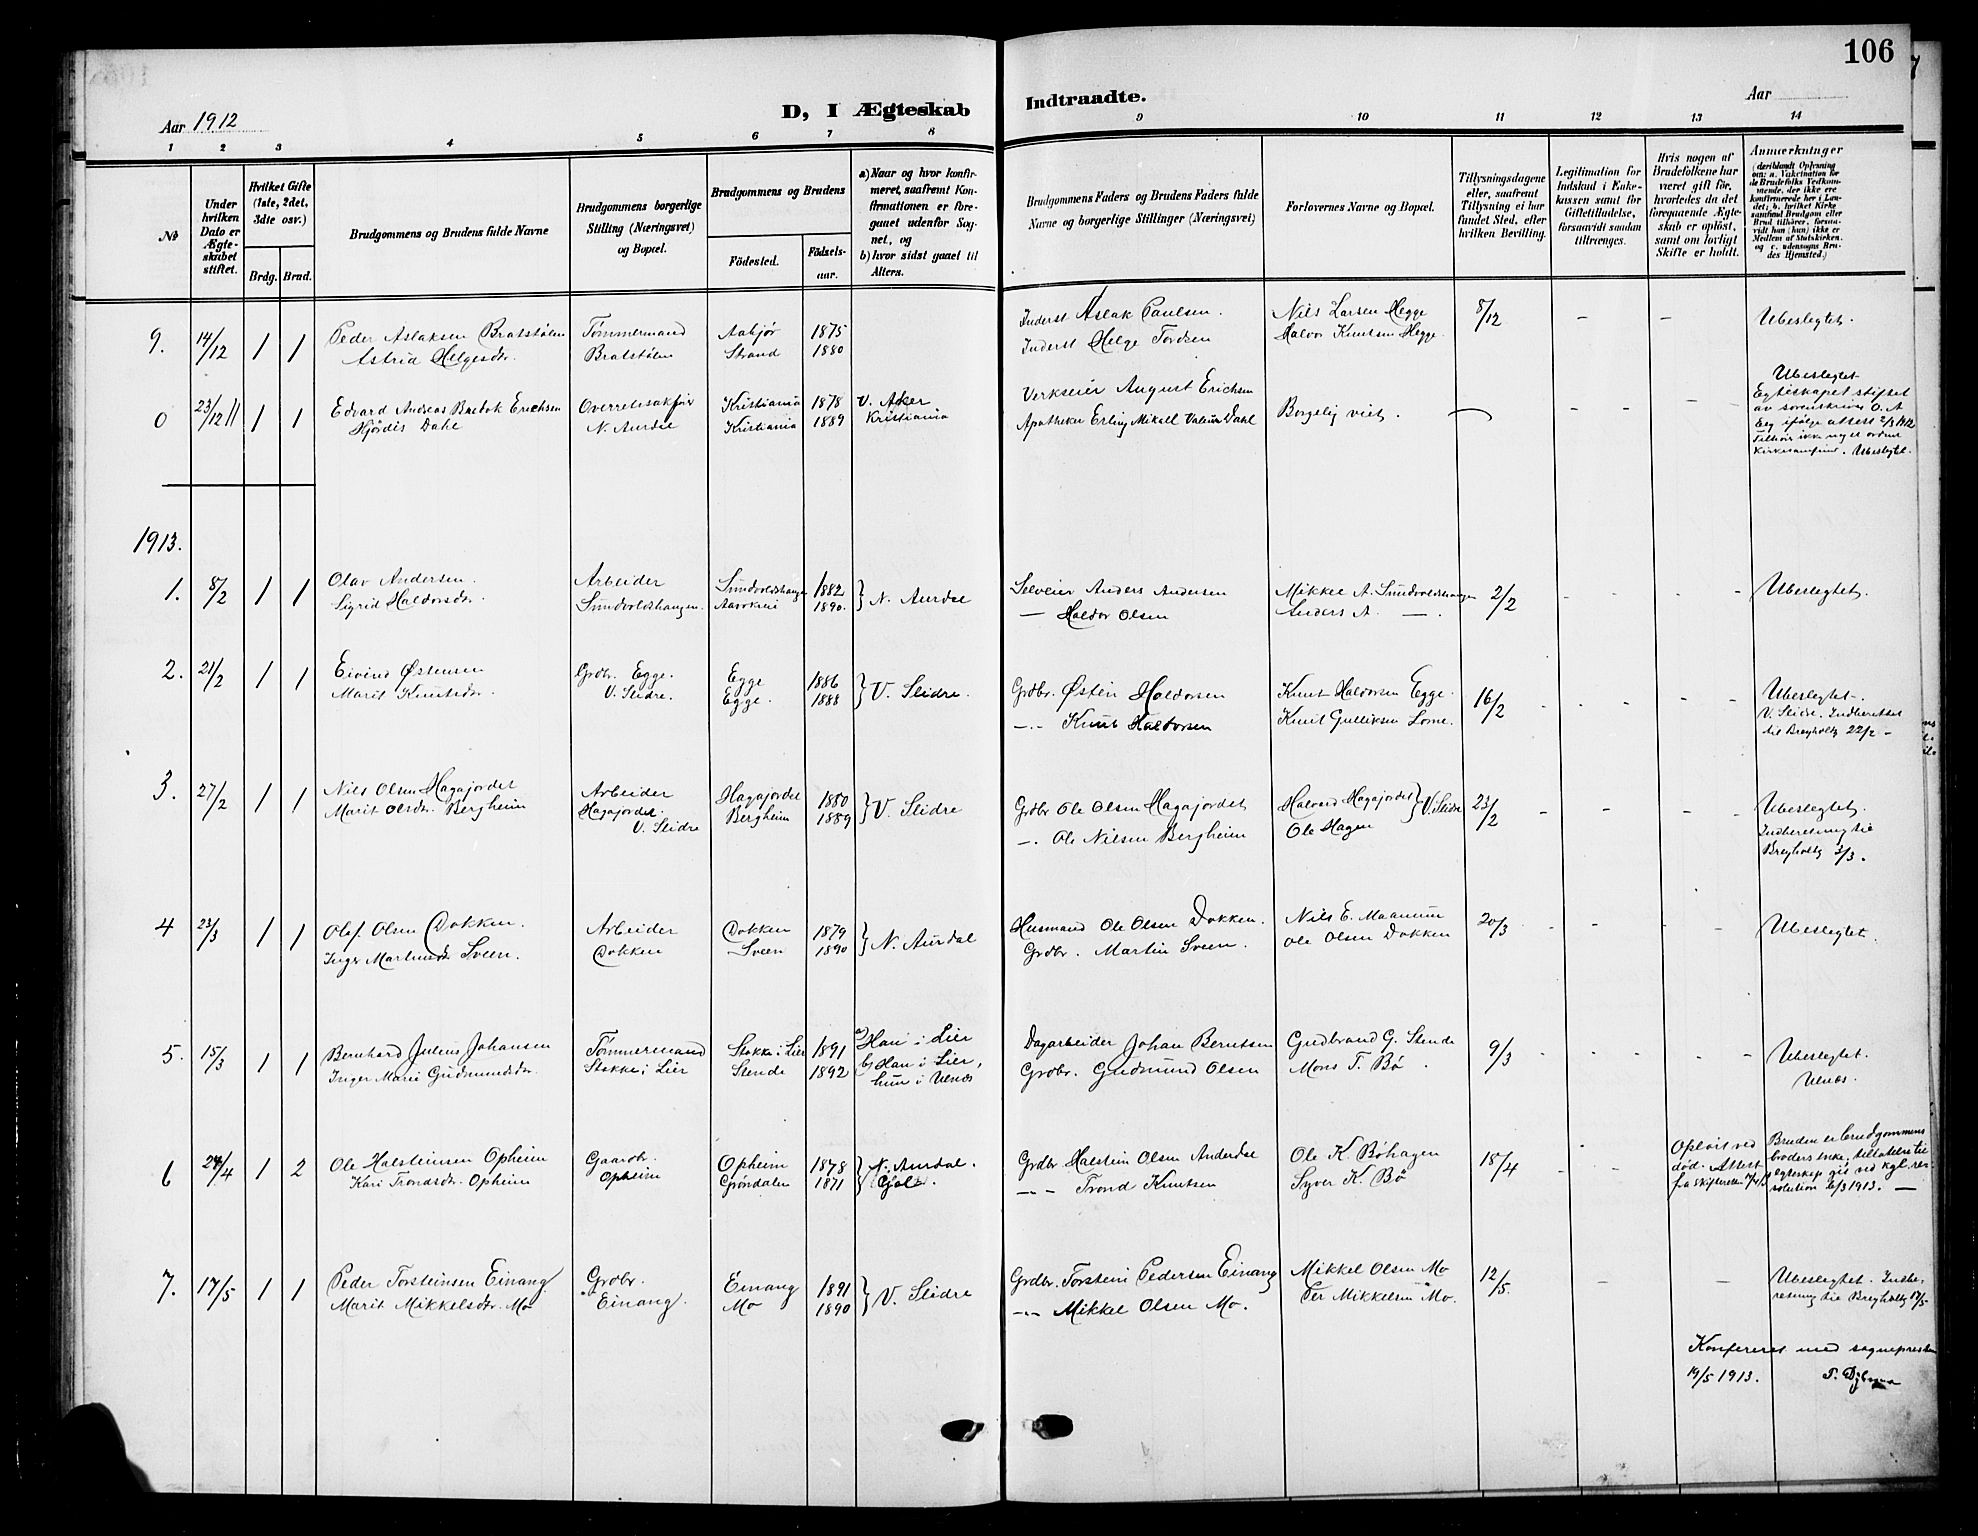 106
Aar 1912
D, I Ægteskab Indtraadte.
Aar
1 2 3 4 5 6 7 8 9 10 11 12 13 14
№
Under hvilken Dato er Ægteskabet stiftet.
Hvilket Gifte (1ste, 2det, 3die osv.)
Brdg. Brud.
Brudgommens og Brudens fulde Navne
Brudgommens borgerlige Stilling (Næringsvei) og Bopæl.
Brudgommens og Brudens
Fødested.
Fødselsaar.
a) Naar og hvor konfirmeret, saafremt Konfirmationen er foregaaet udenfor Sognet, og
b) hvor sidst gaaet til Alters.
Brudgommens Faders og Brudens Faders fulde Navne og borgerlige Stillinger (Næringsvei)
Forlovernes Navne og Bopæl.
Tillysningsdagene eller, saafremt Tillysning ei har fundet Sted, efter hvilken Bevilling.
Legitimation for Indskud i Enkekassen samt for Giftetilladelse, forsaavidt saadan tiltrænges.
Hvis nogen af Brudefolkene har været gift før, hvorledes da det foregaaende Ægteskab er opløst, samt om lovligt Skifte er holdt.
Anmærkninger
(deriblandt Oplysning om: a. Vaccination for de Brudefolks Vedkommende, der ikke ere konfirmerede her i Landet; b. hvilket Kirkesamfund Brudgom eller Brud tilhører, forsaavidt han (hun) ikke er Medlem af Statskirken, og c. udensogns Brudes Hjemsted.)
9. 14/12 1 1 Peder Aslaksen Bratstølen Tømmermand Aabjør 1875 Inderst Aslak Paulsen. Nils Larsen Hegge 8/12 - - Ubeslegtet.
Astrid Helgesdr. Bratstølen Strand 1880 Inderst Helge Tordsen Halvor Knutsen Hegge.
0 23/12 11 1 1 Edvard Andreas Erichsen Overretssakfør Kristiania 1878 V. Aker Verkseier August Erichsen Borgelig viet. — - - - - Ubeslegtet
Hjørdis Dahl N. Aurdal Kristiania 1889 Kristiania Apotheker Erling Mikael Dahl
Egteskapet stiftet
av sorenskriver O. A
ifølge attest 2/3 1912
Tilhør ikke noget ordnet
kirkesamfund. Ubeslegtet.
1913.
1. 8/2 1 1 Olav Andersen. Arbeider Sundvoldshaugen 1882 } N. Aurdal Selveier Anders Andersen Mikkel A. Sundvoldshaugen 2/2 - - - - Ubeslegtet.
Sigrid Haldorsdr. Sundvoldshaugen. 1890. — Haldor Olsen Anders A. — .
2. 21/2 1 1 Eivind Østensen Grdbr. Egge. Egge 1886 } V. Slidre. Grdbr. Østen Haldorsen Knut Haldorsen Egge. 16/2 - - - - Ubeslegtet.
Marit Knutsdr. V. Slidre. Egge. 1888 -.- Knut Haldorsen Knut Gulliksen Lome.
V. Slidre. Indberettet
til Breyholtz 22/2 -
3. 27/2 1 1 Nils Olsen Hagajordet Arbeider Hagajordet 1880 } V. Slidre Grdbr Ole Olsen Hagajordet Halvard Hagajordet } V. Slidre 23/2 - - - - Ubeslegtet.
Marit Olsdr. Bergheim Hagajordet. Bergheim 1889 -. Ole Nilsen Bergheim Ole Hagen
V. Slidre
Indberetning til
Breyholtz 3/3.
4 23/3 1 1 Olaf. Olsen Dokken. Arbeider Dokken 1879 } N. Aurdal Husmand Ole Olsen Dokken. Nils E. Maanum 20/3 - - - - Ubeslegtet.
Inger Martinsdr. Sveen. Dokken Sveen 1890 Grdbr. Martin Sveen. Ole Olsen Dokken
5. 15/3 1 1 Bernhard Julius Johansen Tømmermand Stokke i Lier 1891 a) Han i Lier Dagarbeider Johan Berntsen Gudbrand G. Stende 9/3 - - - - Ubeslegtet.
Inger Marie Gudmundsdr. Stokke i Lier Stende 1892 b) Han i Lier, Grdbr. Gudmund Olsen Mons T. Bø Ulnes.
hun i Ulnes
6 24/4 1 2 Ole Halsteinsen Opheim Gaardbr. Opheim 1878 N. Aurdal. Grdbr. Halstein Olsen Ole K. Bøhagen 18/4 - - Opløst ved
Kari Trondsdr. Opheim Opheim Grøndalen 1871 Gol. -.- Trond Knutsen Syver K. Bø død. Attest
fra skifteretten
Bruden er brudgommens
broders enke, tilladelse til
egteskap git ved kgl. resolution
6/3 1913. —
7. 17/5 1 1 Peder Torsteinsen Einang Grdbr. Einang 1891 } V. Slidre Grdbr. Torstein Pedersen Einang Mikkel Olsen Mo 12/5. - - Ubeslegtet. Indberetning
Marit Mikkelsdr. Mo Einang. Mo 1890 -.- Mikkel Olsen Mo. Per Mikkelsen Mo. til Breyholtz 17/5
Konfereret med sognepresten
19/5 1913.